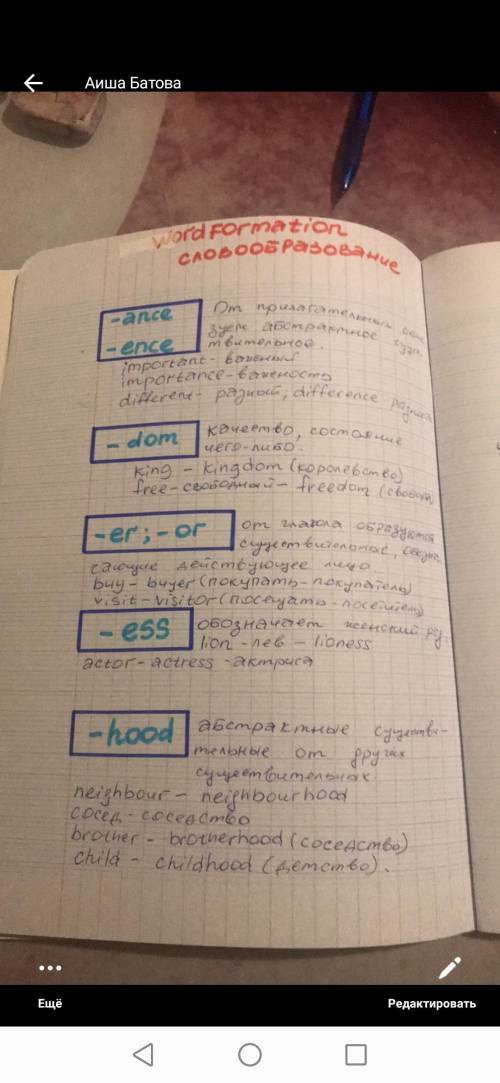 Аиша Батова
WORD FORMATION
СЛОВООБРАЗОВАНИЕ
-ance
-ence
От прилагательных
зуем абстрактное
твительное.
important - важный
importance - важность
different - разный, difference
-dom
качество, состояние
чего-либо.
king - kingdom (королевство)
free - свободный - freedom
-er; -or
от глагола образуются
существительные,
действующее лицо
buy - buyer (покупать - покупатель)
visit - visitor (посещать - посетитель)
-ess
обозначает женский
lion - лев - lioness
actor - actress - актриса
-hood
абстрактные существи-
тельные от других
существительных
neighbour - neighbourhood
сосед - соседство
brother - brotherhood (соседство)
child - childhood (детство).
Ещё
Редактировать